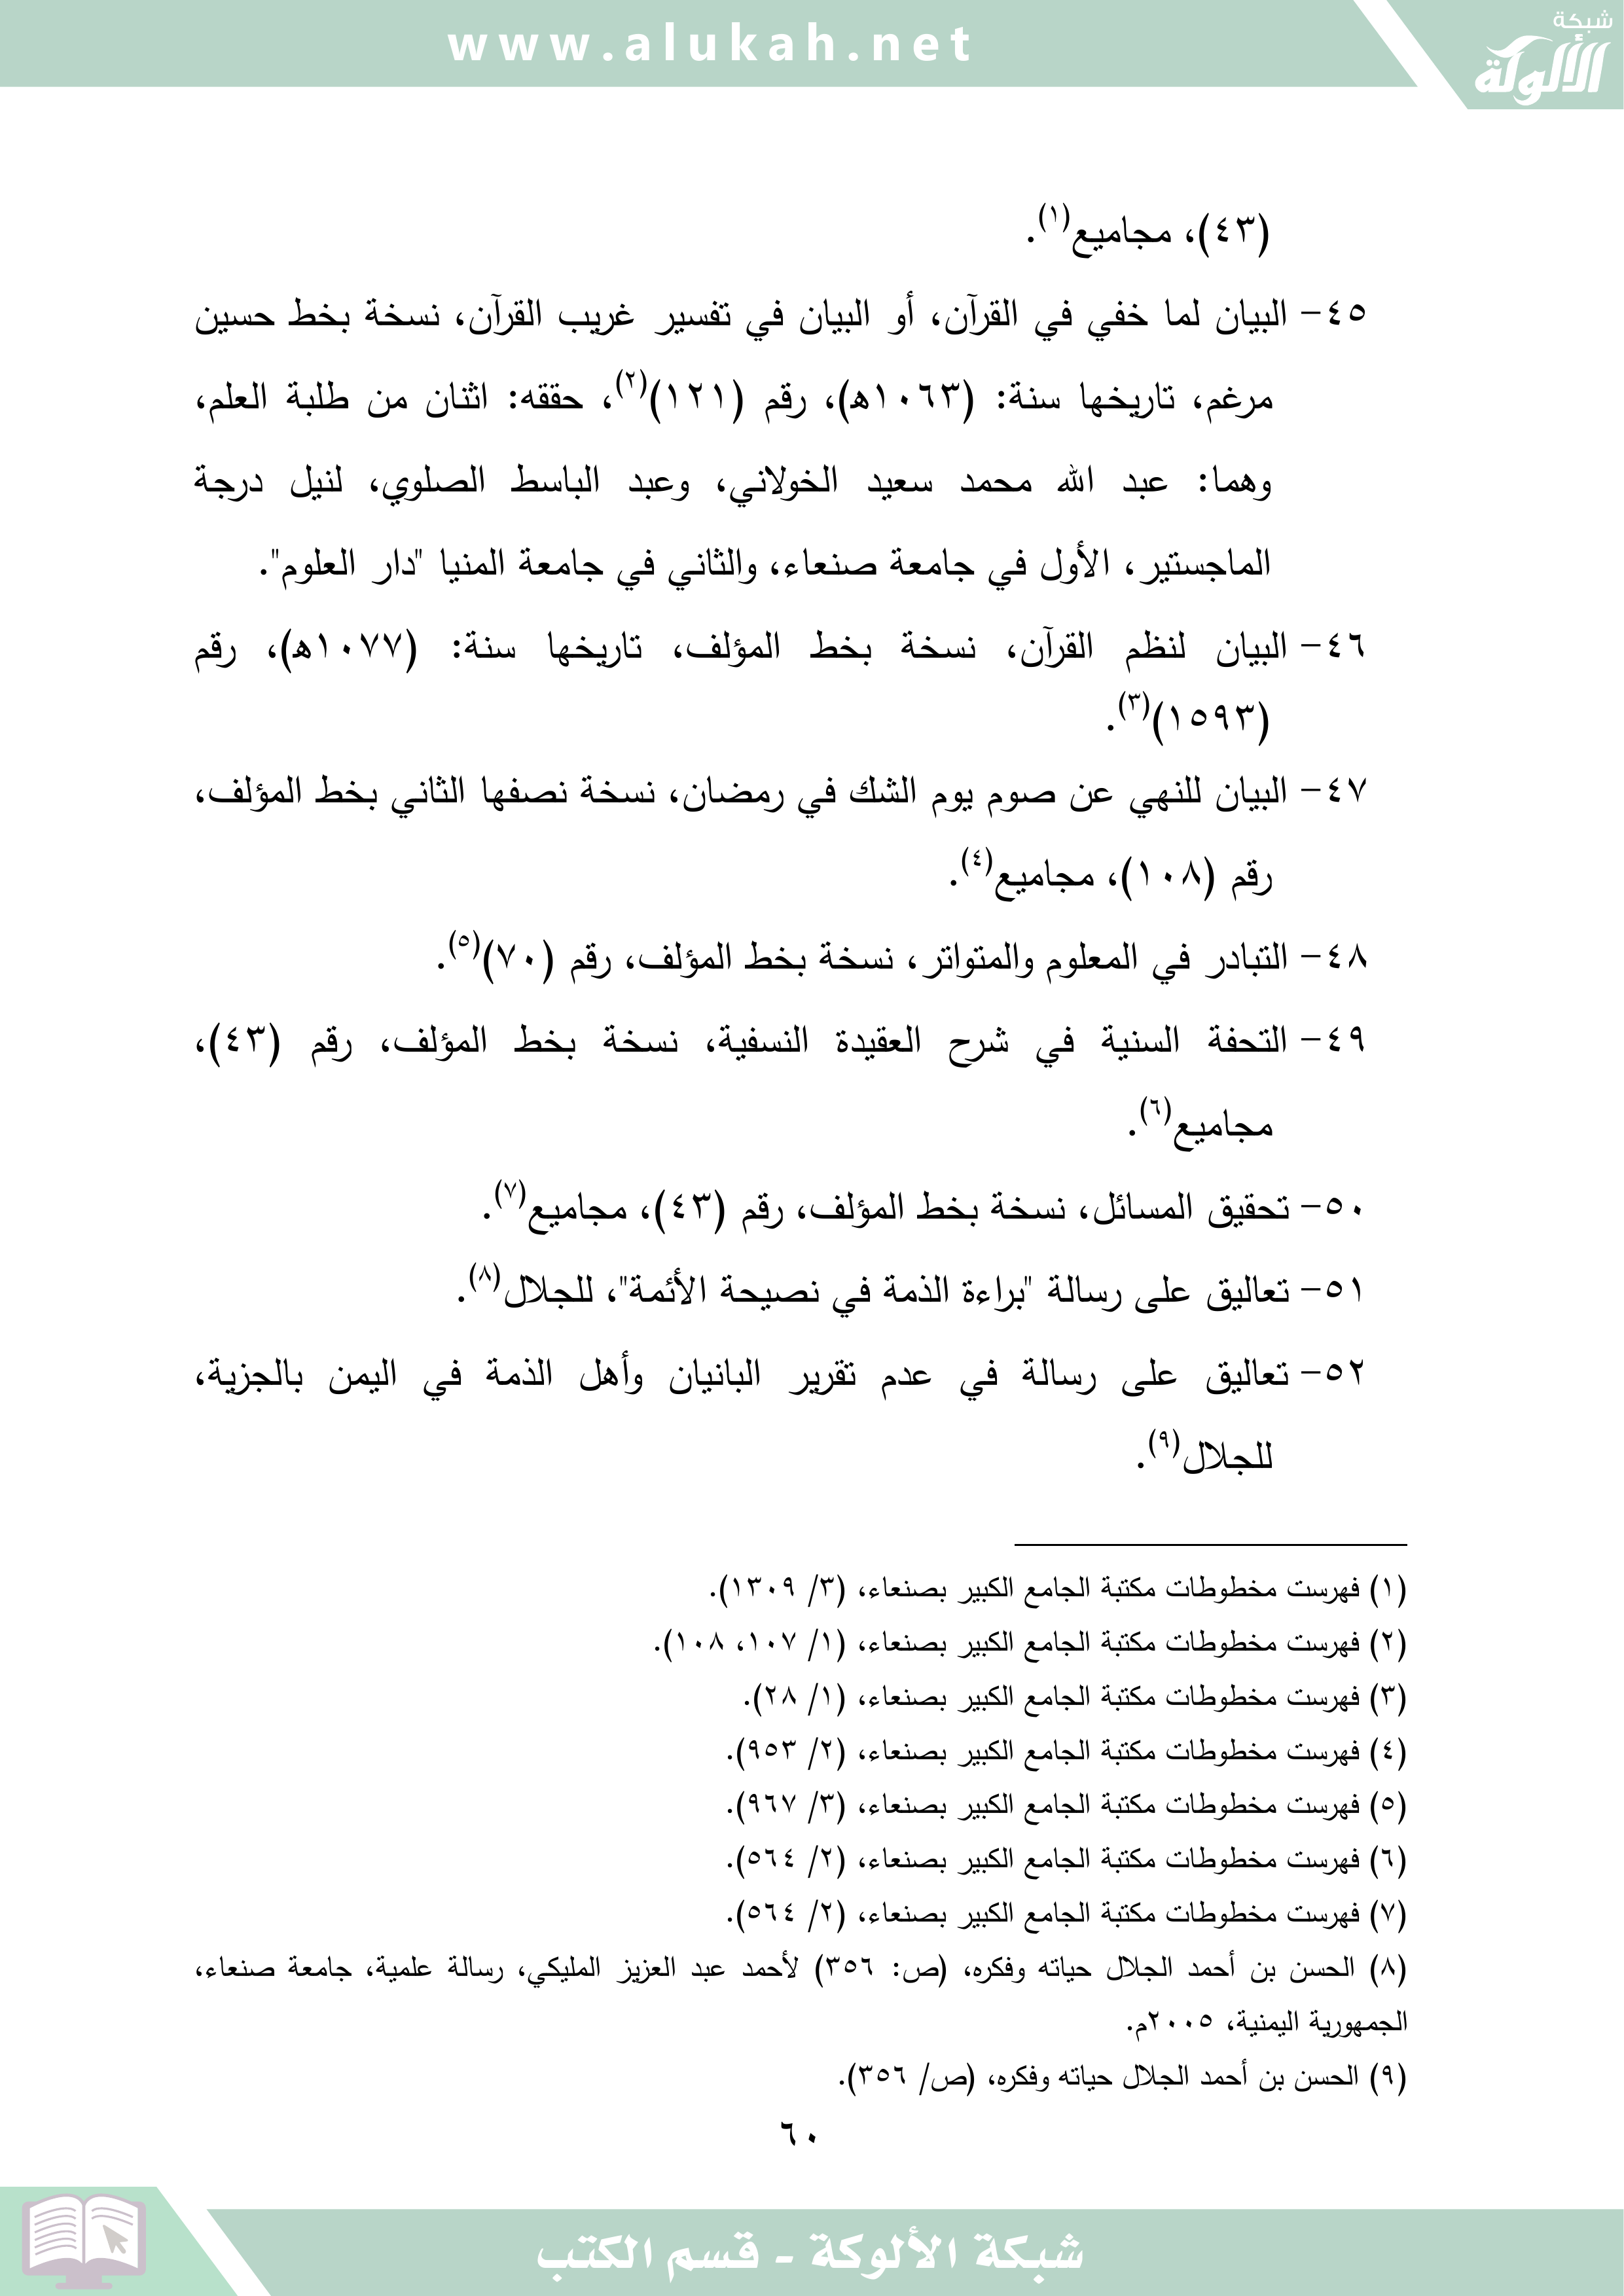 www.alukah.net
شبكة
الألوكة
(٤٣)، مجاميع(١).
٤٥- البيان لما خفي في القرآن، أو البيان في تفسير غريب القرآن، نسخة بخط حسين
مرغم، تاريخها سنة: (١٠٦٣ه)، رقم (١٢١)(٢)، حققه: اثنان من طلبة العلم،
وهما: عبد الله محمد سعيد الخولاني، وعبد الباسط الصلوي، لنيل درجة
الماجستير، الأول في جامعة صنعاء، والثاني في جامعة المنيا "دار العلوم".
٤٦- البيان لنظم القرآن، نسخة بخط المؤلف، تاريخها سنة: (١٠٧٧ه)، رقم
(١٥٩٣)(٣).
٤٧- البيان للنهي عن صوم يوم الشك في رمضان، نسخة نصفها الثاني بخط المؤلف،
رقم (١٠٨)، مجاميع(٤).
٤٨- التبادر في المعلوم والمتواتر، نسخة بخط المؤلف، رقم (٧٠)(٥).
٤٩- التحفة السنية في شرح العقيدة النسفية، نسخة بخط المؤلف، رقم (٤٣)،
مجاميع(٦).
٥٠- تحقيق المسائل، نسخة بخط المؤلف، رقم (٤٣)، مجاميع(٧).
٥١- تعاليق على رسالة "براءة الذمة في نصيحة الأئمة"، للجلال(٨).
٥٢- تعاليق على رسالة في عدم تقرير البانيان وأهل الذمة في اليمن بالجزية،
للجلال(٩).
(١) فهرست مخطوطات مكتبة الجامع الكبير بصنعاء، (٣/ ١٣٠٩).
(٢) فهرست مخطوطات مكتبة الجامع الكبير بصنعاء، (١/ ١٠٧، ١٠٨).
(٣) فهرست مخطوطات مكتبة الجامع الكبير بصنعاء، (١/ ٢٨).
(٤) فهرست مخطوطات مكتبة الجامع الكبير بصنعاء، (٢/ ٩٥٣).
(٥) فهرست مخطوطات مكتبة الجامع الكبير بصنعاء، (٣/ ٩٦٧).
(٦) فهرست مخطوطات مكتبة الجامع الكبير بصنعاء، (٢/ ٥٦٤).
(٧) فهرست مخطوطات مكتبة الجامع الكبير بصنعاء، (٢/ ٥٦٤).
(٨) الحسن بن أحمد الجلال حياته وفكره، (ص: ٣٥٦) لأحمد عبد العزيز المليكي، رسالة علمية، جامعة صنعاء،
الجمهورية اليمنية، ٢٠٠٥م.
(٩) الحسن بن أحمد الجلال حياته وفكره، (ص/ ٣٥٦).
٦٠
شبكة الألوكة - قسم الكتب